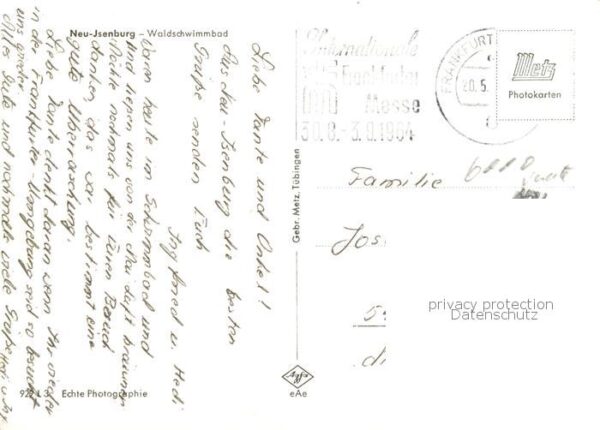 Neu-Jsenburg – Waldschwimmbad
Liebe Tante und Onkel!
Aus Neu-Isenburg die besten
Grüße senden Euch
Ingfried u. Hedi
Waren heute im Schwimmbad und
und liegen uns von der Mai Luft bräunen
Möchte nochmals für Euren Besuch
danken, das war bestimmt eine
gute Überraschung.
Liebe Tante denkt daran wenn Ihr wieder
in der Frankfurter Umgebung seid so besucht
uns wieder
Alles Gute und nochmals viele Grüße Hedi u. Ing
922 L 3 Echte Photographie
Gebr. Metz, Tübingen
Agfa
eAe
Internationale
Frankfurter
Messe
30.8.-3.9.1964
FRANKFURT
20.5.
Metz
Photokarten
Familie
Jos
privacy protection
Datenschutz